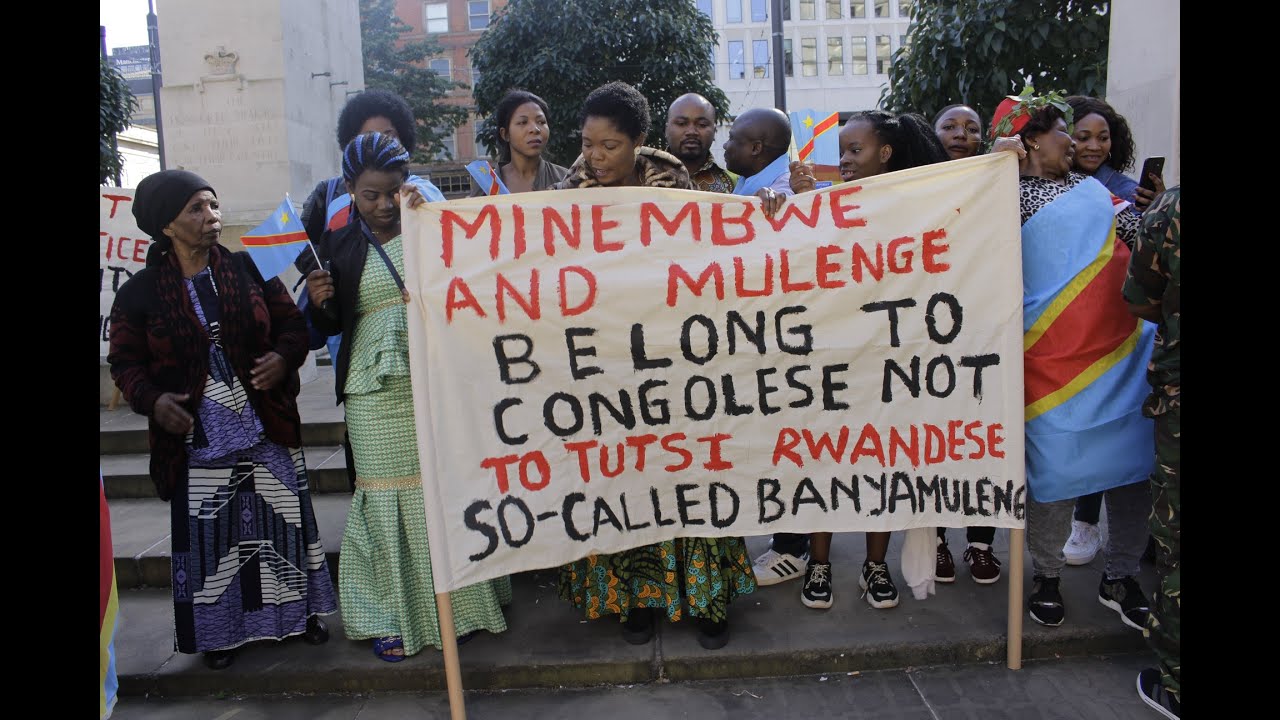 MINEMBWE
AND MULENGE
BELONG TO
CONGOLESE NOT
TO TUTSI RWANDESE
SO-CALLED BANYAMULENG